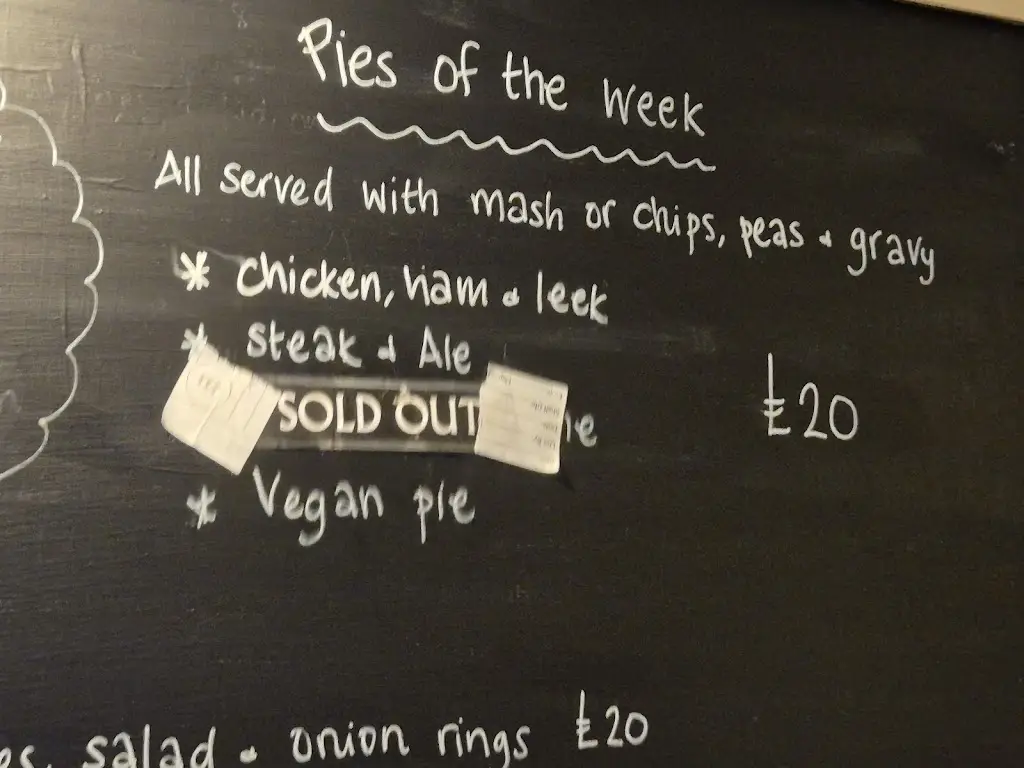 Pies of the week
All served with mash or chips, peas & gravy
* chicken, ham & leek
* steak & Ale
SOLD OUT
£20
* Vegan pie
salad & onion rings £20